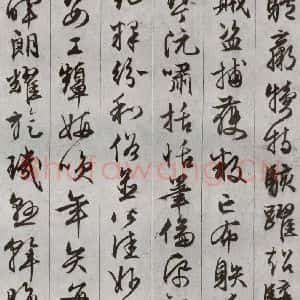 騾犢特駭躍超驤
賊盜捕獲叛亡布射
琴阮嘯恬筆倫紙
釋紛利俗並皆佳妙
姿工顰妍笑年矢每
暉朗耀旋璣懸斡晦
Shufawang.CN